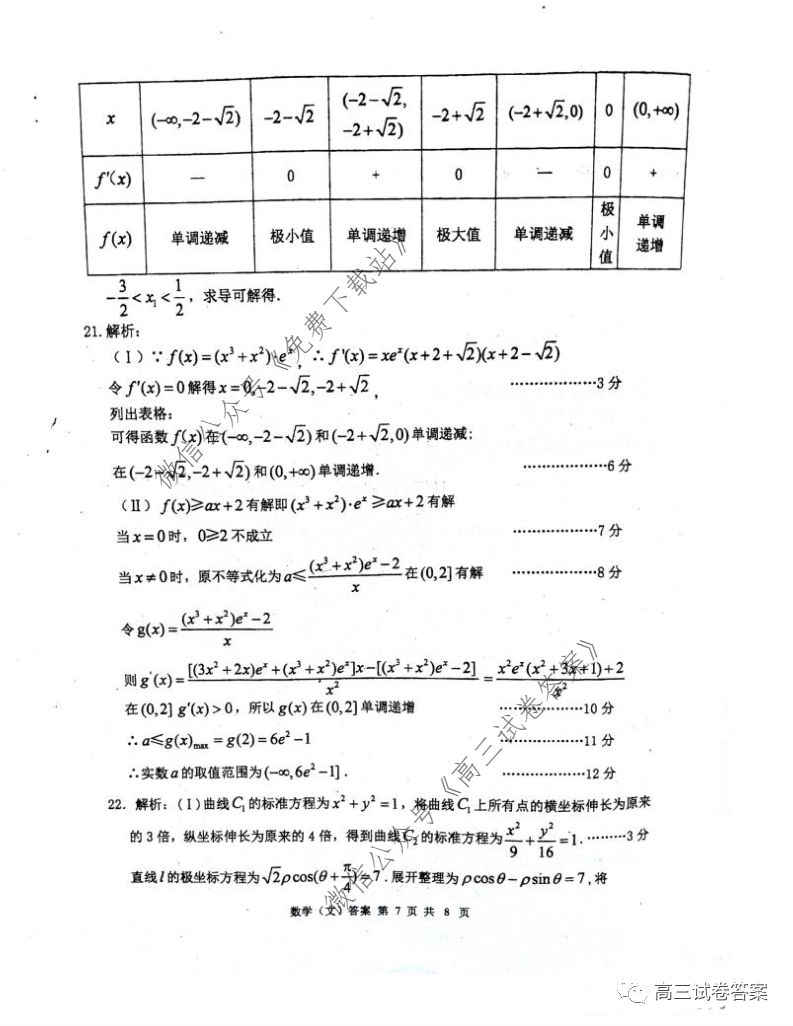 x (-∞,-2-√2) -2-√2 (-2-√2, -2+√2) -2+√2 (-2+√2,0) 0 (0,+∞)
f'(x) — 0 + 0 — 0 +
f(x) 单调递减 极小值 单调递增 极大值 单调递减 极小值 单调递增
-3/2<x₁<1/2，求导可解得.
21.解析：
（Ⅰ）∵ f(x)=(x³+x²)·eˣ，∴ f'(x)=xeˣ(x+2+√2)(x+2-√2)
令 f'(x)=0 解得 x=0,-2-√2,-2+√2， ………………3 分
列出表格：
可得函数 f(x) 在(-∞,-2-√2) 和 (-2+√2,0) 单调递减；
在(-2-√2,-2+√2) 和 (0,+∞) 单调递增. ………………6 分
（Ⅱ） f(x)≥ax+2 有解即 (x³+x²)·eˣ ≥ax+2 有解
当 x=0 时，0≥2 不成立 ………………7 分
当 x≠0 时，原不等式化为 a≤((x³+x²)eˣ-2)/x 在 (0,2] 有解 ………………8 分
令 g(x)=((x³+x²)eˣ-2)/x
则 g'(x)=([(3x²+2x)eˣ+(x³+x²)eˣ]x-[(x³+x²)eˣ-2])/x² = (x²eˣ(x²+3x+1)+2)/x²
在 (0,2] g'(x)>0，所以 g(x) 在 (0,2] 单调递增 ………………10 分
∴a≤g(x)max=g(2)=6e²-1 ………………11 分
∴实数 a 的取值范围为 (-∞,6e²-1]. ………………12 分
22. 解析：(Ⅰ)曲线 C₁ 的标准方程为 x²+y²=1，将曲线 C₁ 上所有点的横坐标伸长为原来
的 3 倍，纵坐标伸长为原来的 4 倍，得到曲线 C₂ 的标准方程为 x²/9+y²/16=1. ………3 分
直线 l 的极坐标方程为 √2ρcos(θ+π/4)=7. 展开整理为 ρcosθ-ρsinθ=7，将
数学（文）答案 第 7 页 共 8 页
微信公众号《免费下载站》
微信公众号《高三试卷答案》
高三试卷答案